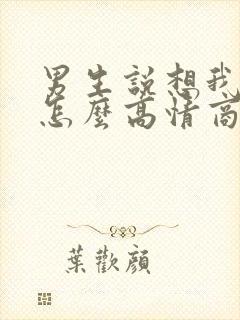 男生說想我
怎麼高情商
葉歡顏